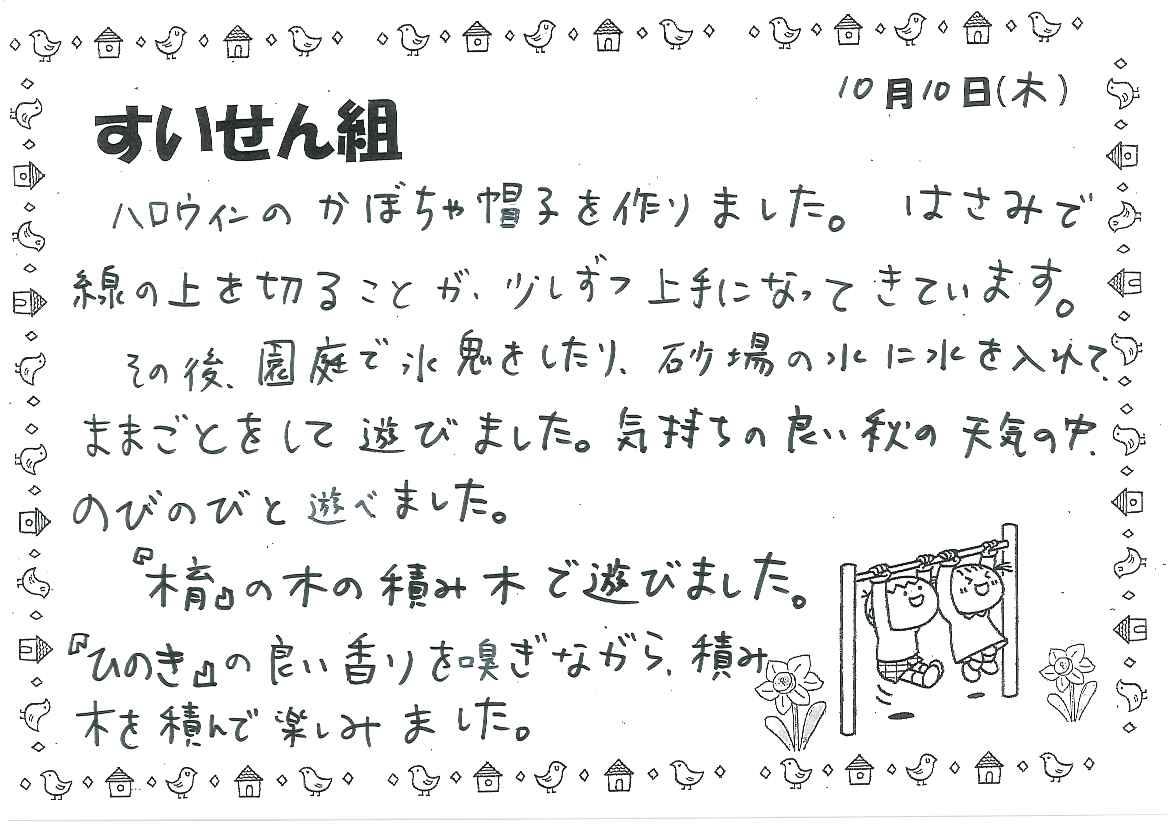 10月10日(木)
すいせん組
ハロウィンのかぼちゃ帽子を作りました。 はさみで
線の上を切ることが、少しずつ上手になってきています。
その後、園庭で氷鬼をしたり、砂場の水に水を入れて、
ままごとをして遊びました。気持ちの良い秋の天気の中、
のびのびと遊べました。
『木育』の木の積み木で遊びました。
『ひのき』の良い香りを嗅ぎながら、積み
木を積んで楽しみました。